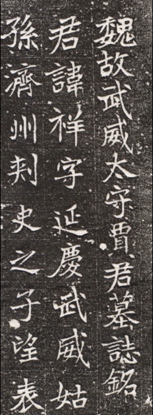 魏故武威太守賈君墓誌銘
君諱祥字延慶武威姑
孫濟州刾史之子望表